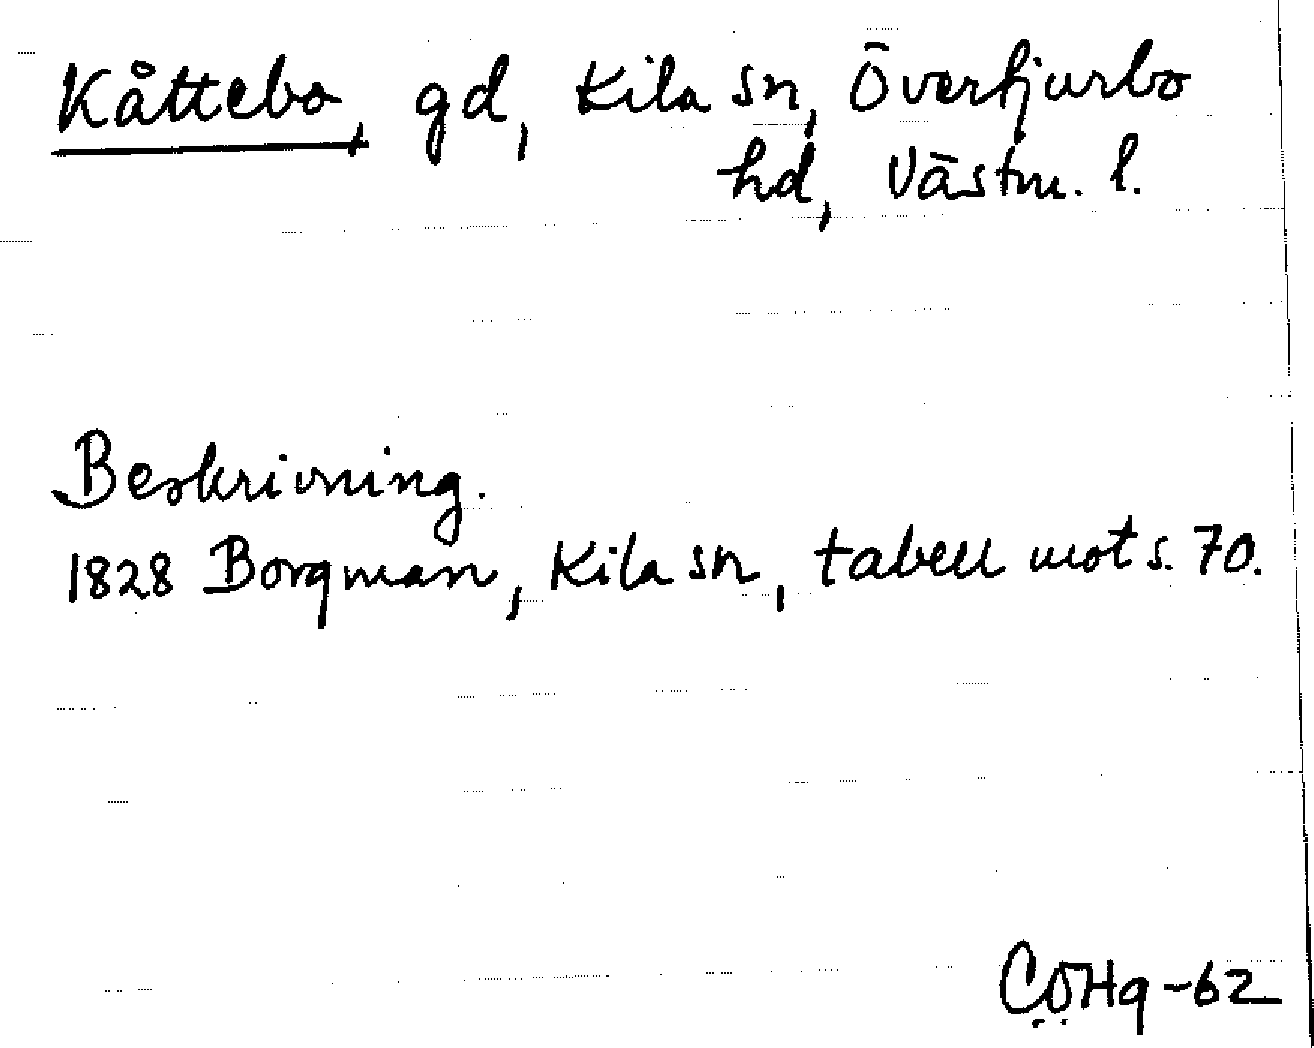 Kåttebo, gd, Kila sn, Överfjurbo
hd, Västm. l.
Beskrivning.
1828 Borgman, Kila sn, tabell mot s. 70.
CÖHg-62